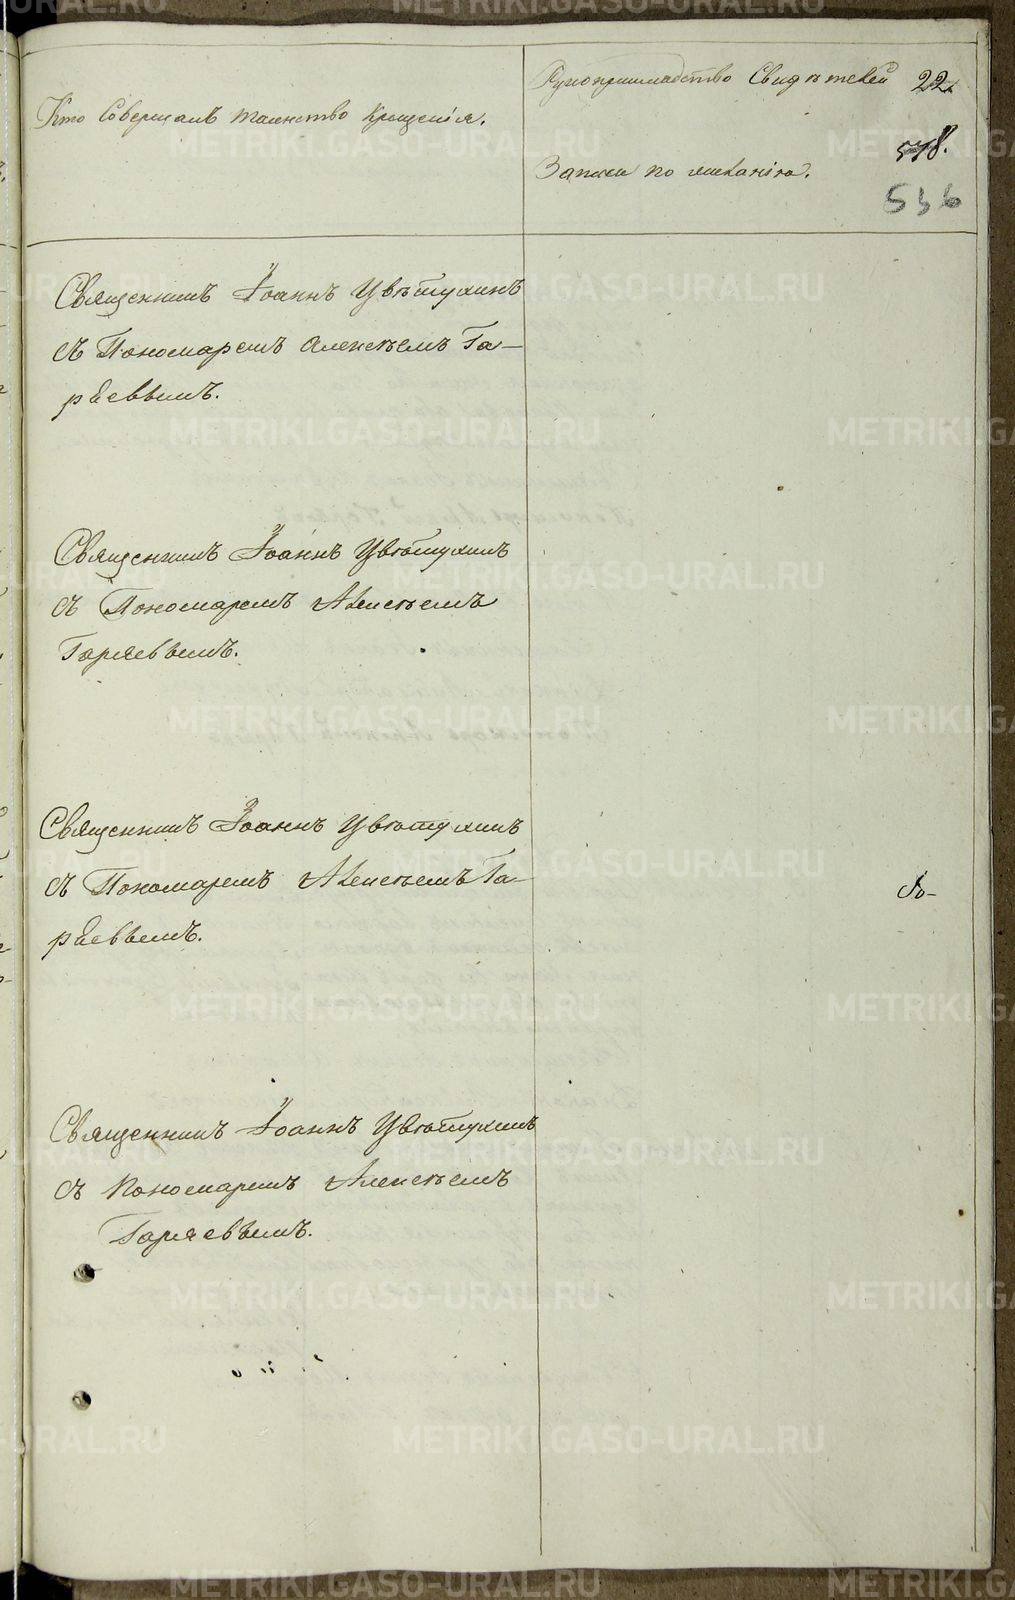 Кто Совершалъ таинство Крещенія.
Рукоприкладство Свидѣтелей
22
Записи по желанію.
518.
536
Священникъ Іоаннъ Цвѣтухинъ
съ Пономаремъ Алексѣемъ Га-
ряевымъ.
Священникъ Іоаннъ Цвѣтухинъ
съ Пономаремъ Алексѣемъ
Гаряевымъ.
Священникъ Іоаннъ Цвѣтухинъ
съ Пономаремъ Алексѣемъ Га-
ряевымъ.
Священникъ Іоаннъ Цвѣтухинъ
съ Пономаремъ Алексѣемъ
Гаряевымъ.
METRIKI.GASO-URAL.RU